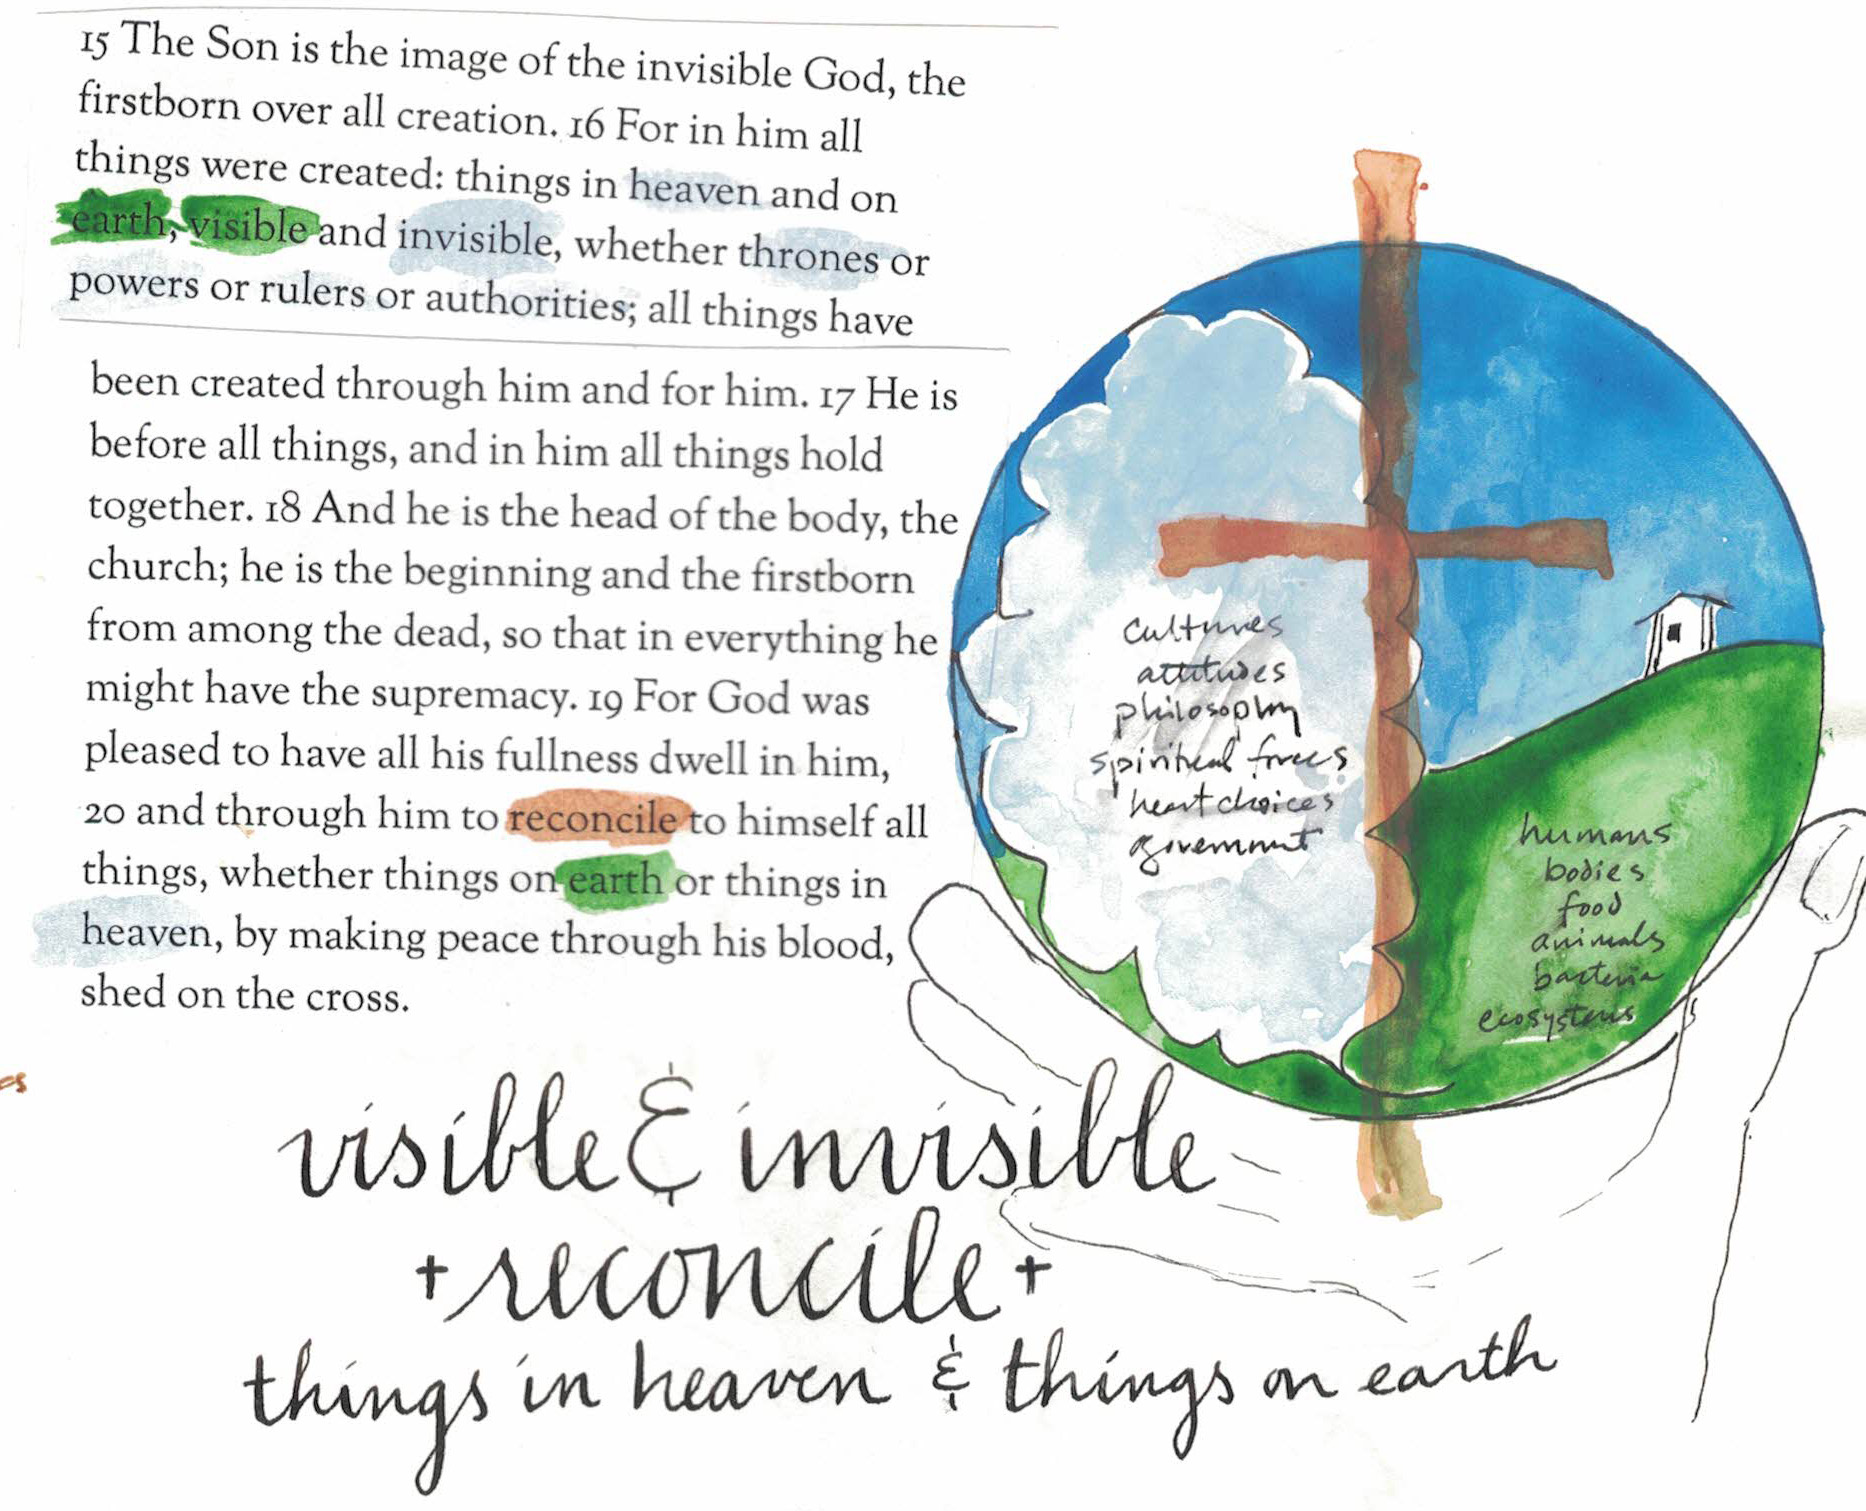 15 The Son is the image of the invisible God, the
firstborn over all creation. 16 For in him all
things were created: things in heaven and on
earth, visible and invisible, whether thrones or
powers or rulers or authorities; all things have
been created through him and for him. 17 He is
before all things, and in him all things hold
together. 18 And he is the head of the body, the
church; he is the beginning and the firstborn
from among the dead, so that in everything he
might have the supremacy. 19 For God was
pleased to have all his fullness dwell in him,
20 and through him to reconcile to himself all
things, whether things on earth or things in
heaven, by making peace through his blood,
shed on the cross.
cultures
attitudes
philosophy
spiritual forces
heart choices
government
humans
bodies
food
animals
bacteria
ecosystems
visible & invisible
+ reconcile +
things in heaven & things on earth